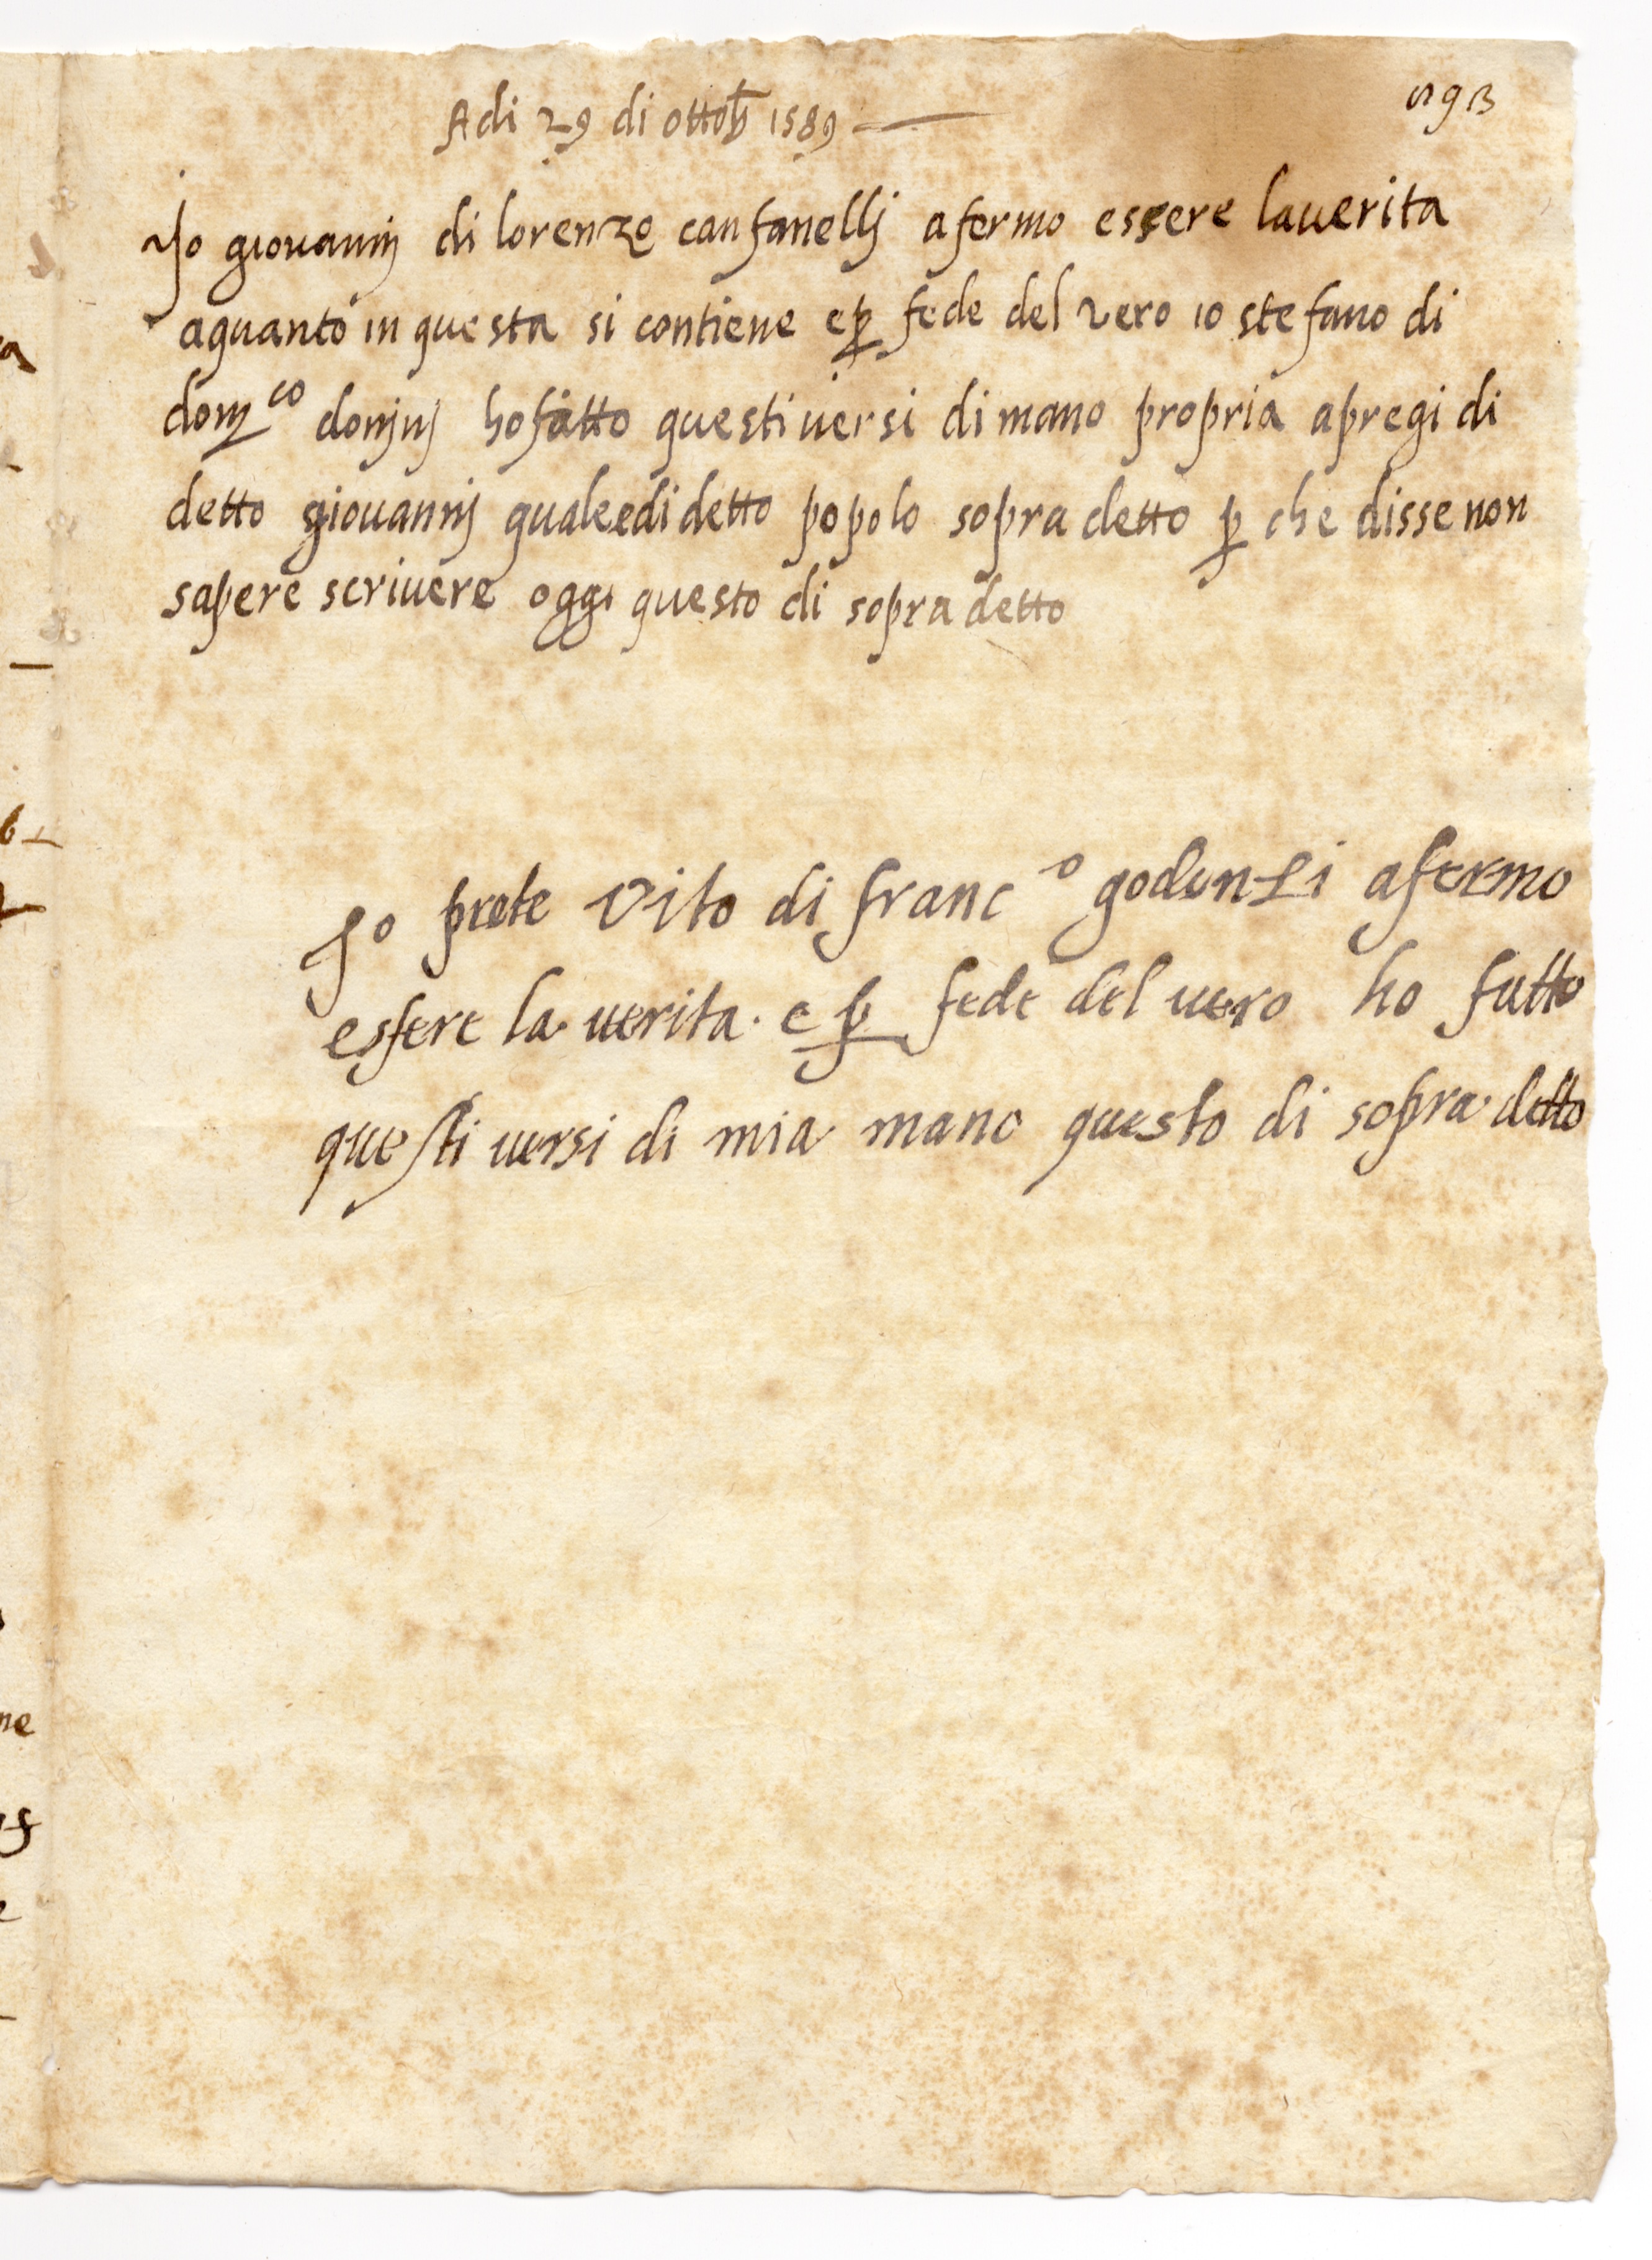 593
Adi 29 di ottob 1589
Jo giovannj di lorenzo canfanellj afermo essere la uerita
aquanto in questa si contiene e p fede del vero io stefano di
domco donjnj ho fatto questi uersi di mano propria apregi di
detto giouannj quale e di detto popolo sopra detto p che disse non
sapere scriuere oggi questo di sopra detto
Jo prete Vito di franco godenzi afermo
essere la uerita. e p fede del uero ho fatto
questi uersi di mia mano questo di sopra detto